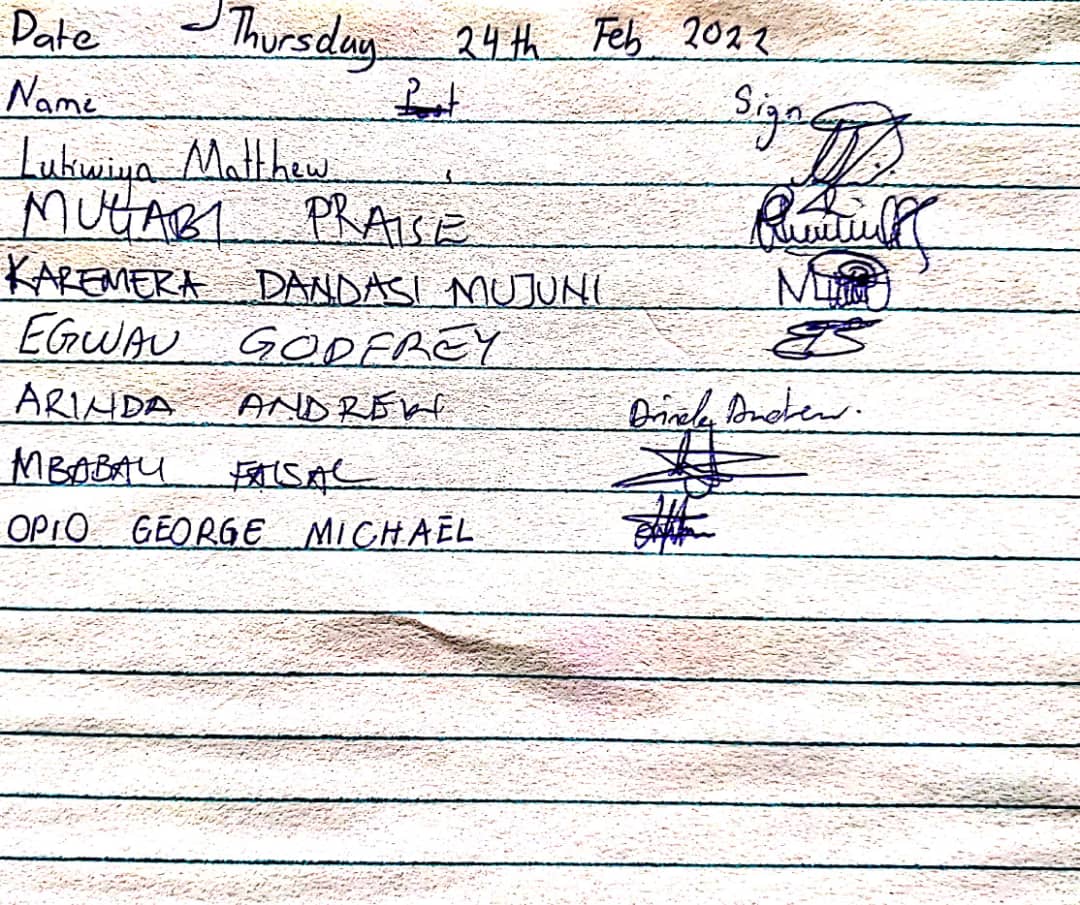 Date Thursday 24th Feb 2022
Name Sign
Lukwiya Matthew
MUGABI PRAISE
KAREMERA DANDASI MUJUNI
EGWAU GODFREY
ARINDA ANDREW Arinda Andrew.
MBABALI FAISAL
OPIO GEORGE MICHAEL